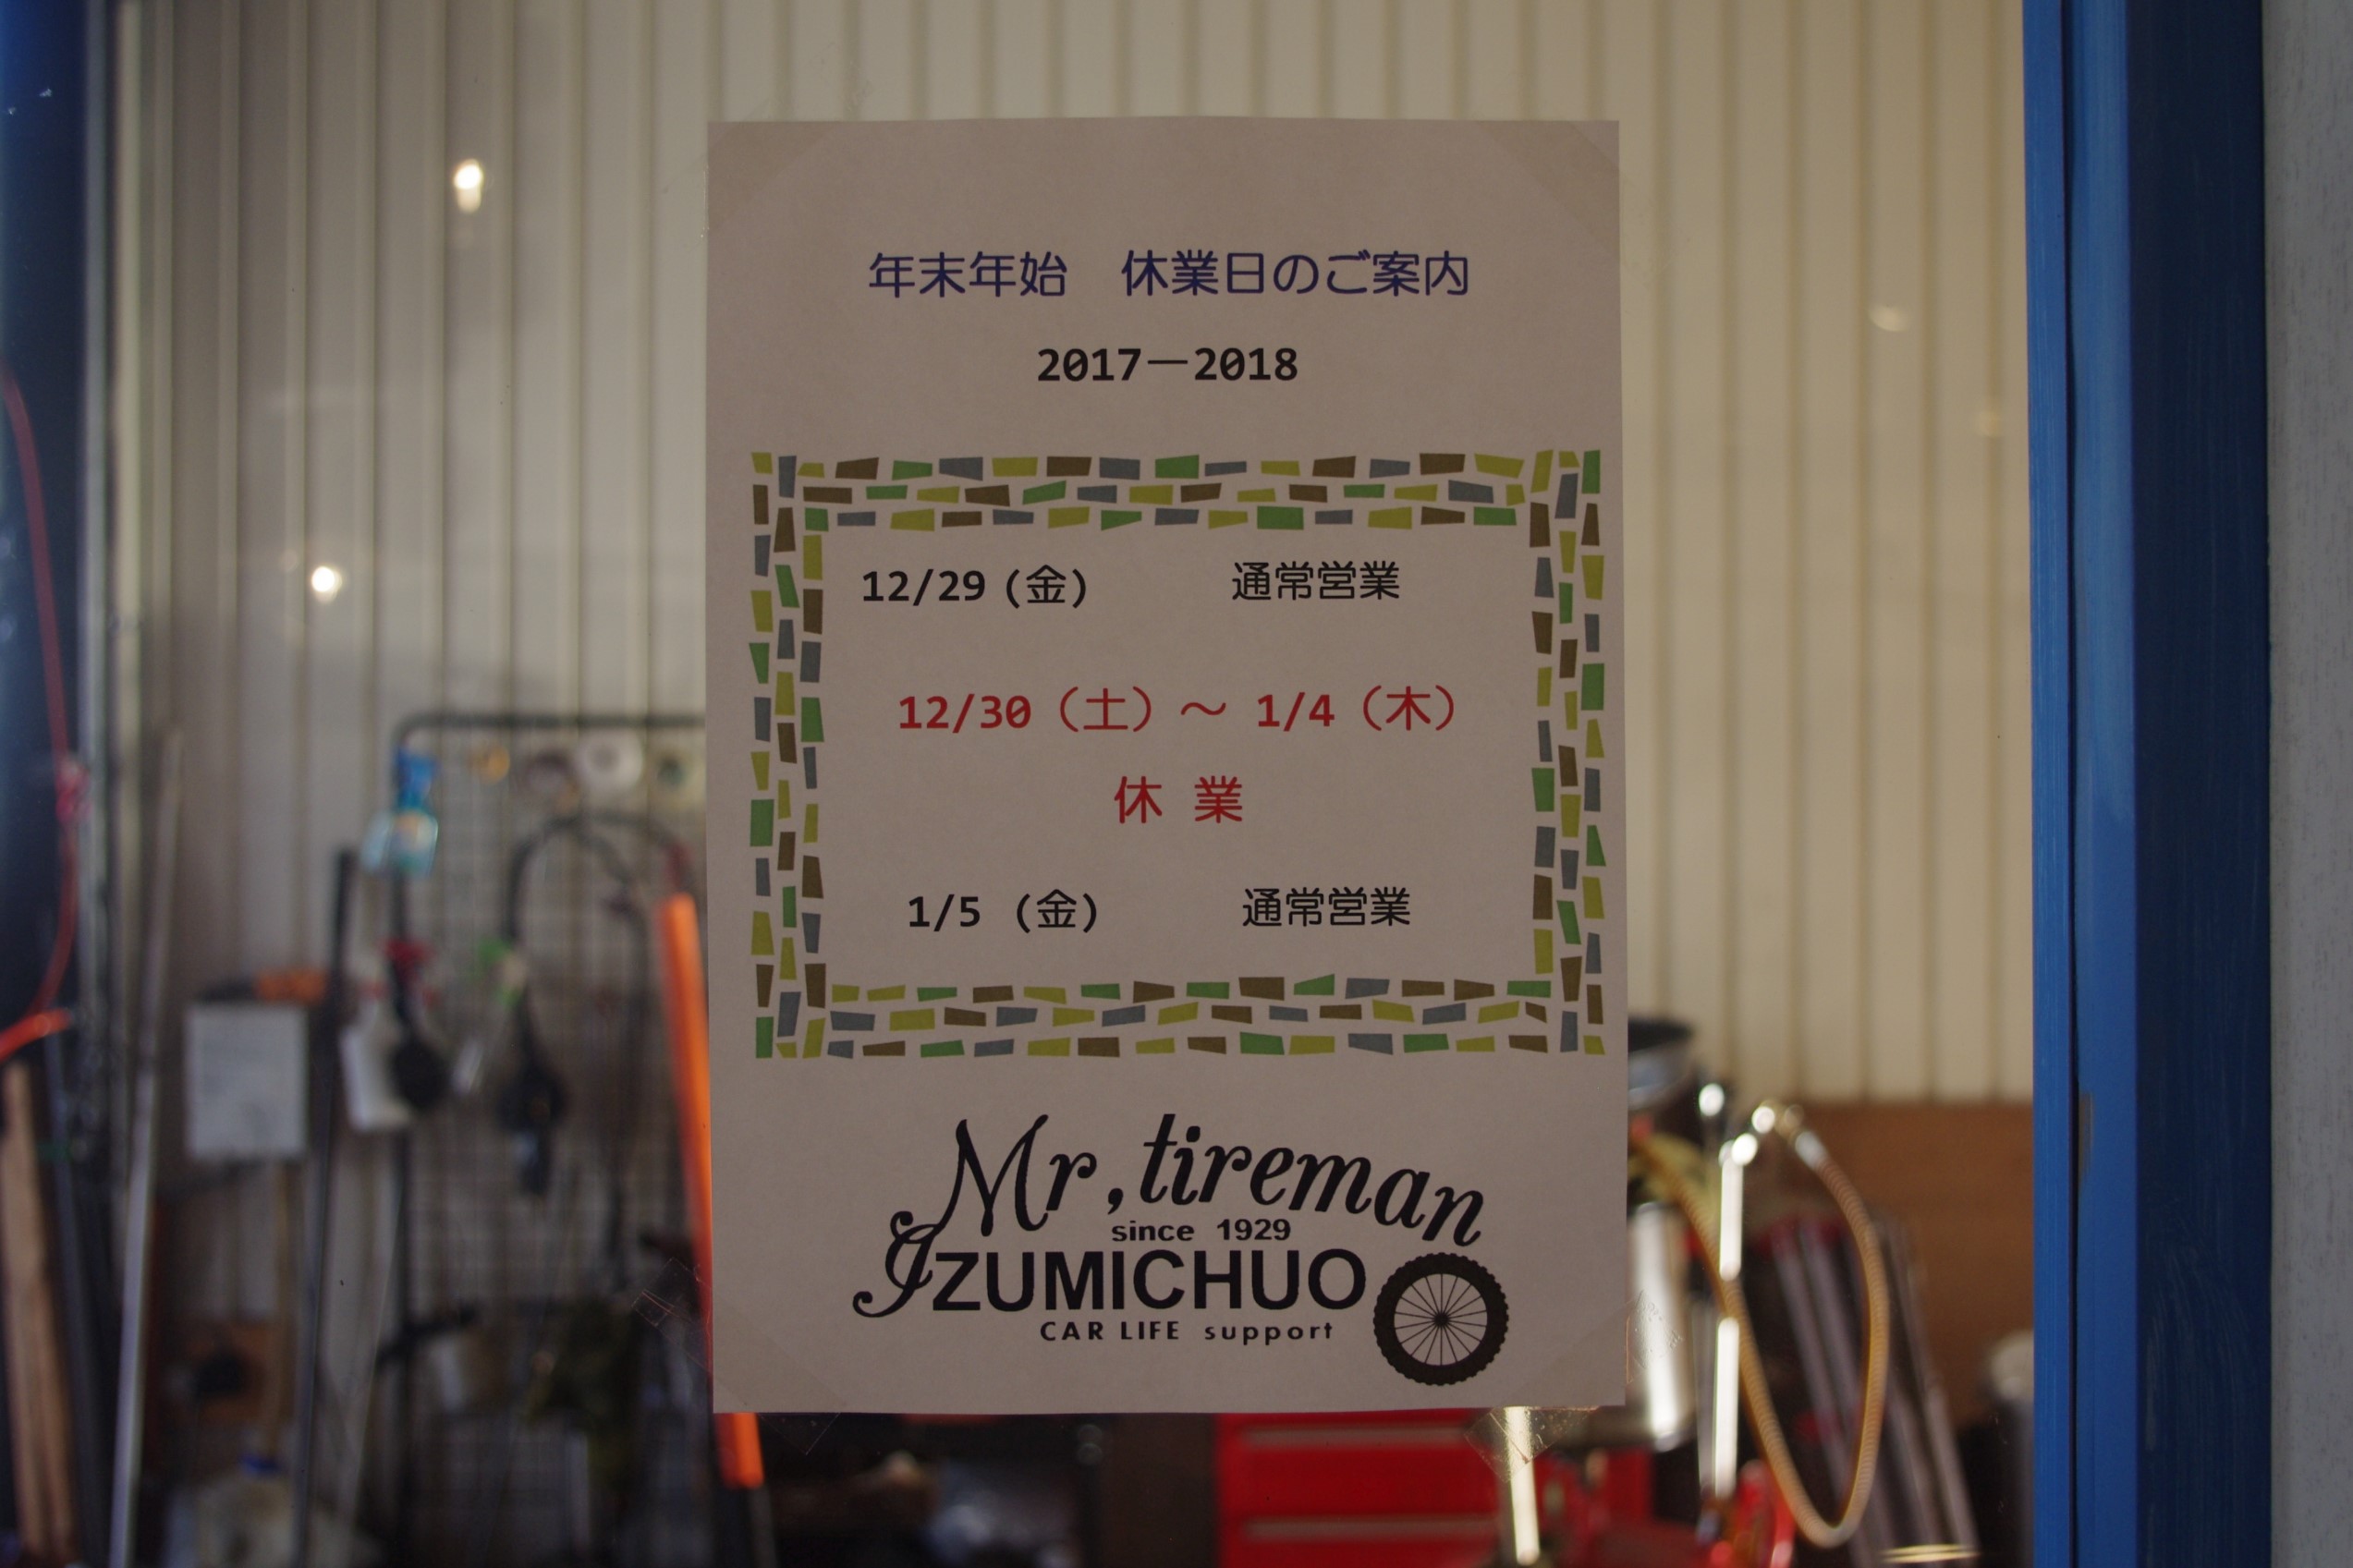 年末年始　休業日のご案内
2017―2018
12/29 (金)　通常営業
12/30（土）～ 1/4（木）
休 業
1/5 (金)　通常営業
Mr,tireman
since 1929
IZUMICHUO
CAR LIFE support